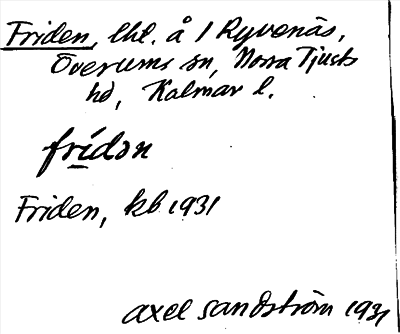 Friden, lht. å 1 Ryvenäs,
Överums sn, Norra Tjusts
hd, Kalmar l.
frídən
Friden, kb 1931
Axel Sandström 1931